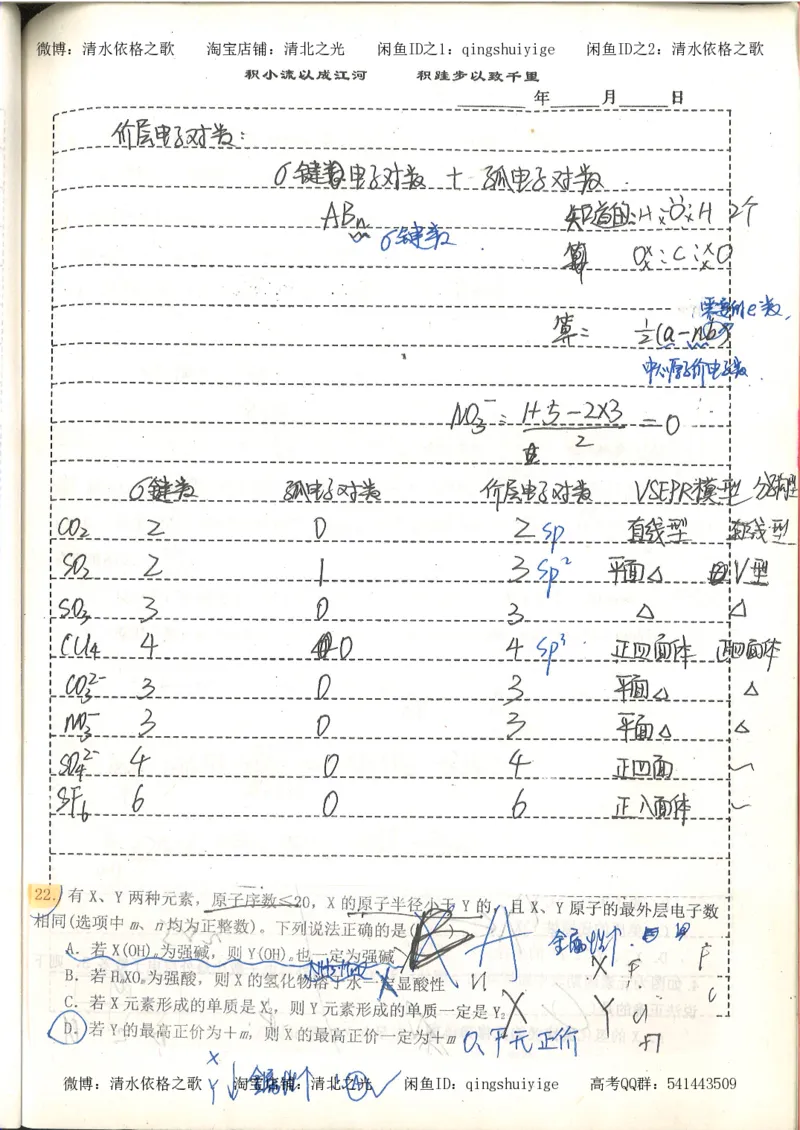 微博：清水依格之歌 淘宝店铺：清北之光 闲鱼ID之1：qingshuiyige 闲鱼ID之2：清水依格之歌
积小流以成江河 积跬步以致千里
年 月 日
价层电子对数：
σ键电子对数 + 孤电子对数
ABn 知道的：H:O:H 2个
σ键数 算 O::C::O
需要的e数，
算： ½(a-nb)
中心原子价电子数
NO₃⁻：(1+5-2×3)/2 = 0
σ键数 孤电子对数 价层电子对数 VSEPR模型
CO₂ 2 0 2 sp 直线型 直线型
SO₂ 2 1 3 sp² 平面△ V型
SO₃ 3 0 3 △ △
CCl₄ 4 0 4 sp³ 正四面体 正四面体
CO₃²⁻ 3 0 3 平面△ △
NO₃⁻ 3 0 3 平面△ △
SO₄²⁻ 4 0 4 正四面
SF₆ 6 0 6 正八面体
22. 有 X、Y 两种元素，原子序数≤20，X 的原子半径小于 Y 的，且 X、Y 原子的最外层电子数
相同(选项中 m、n 均为正整数)。下列说法正确的是( )
A. 若 X(OH)ₙ为强碱，则 Y(OH)ₙ也一定为强碱
B. 若 HₙXOₘ为强酸，则 X 的氢化物溶于水一定显酸性
C. 若 X 元素形成的单质是 X₂，则 Y 元素形成的单质一定是 Y₂
D. 若 Y 的最高正价为+m，则 X 的最高正价一定为+m
A
金属性↑
X F
Y Cl
O、F无正价
+7
X
Y↓ 金属性↑
微博：清水依格之歌 淘宝店铺：清北之光 闲鱼ID：qingshuiyige 高考QQ群：541443509